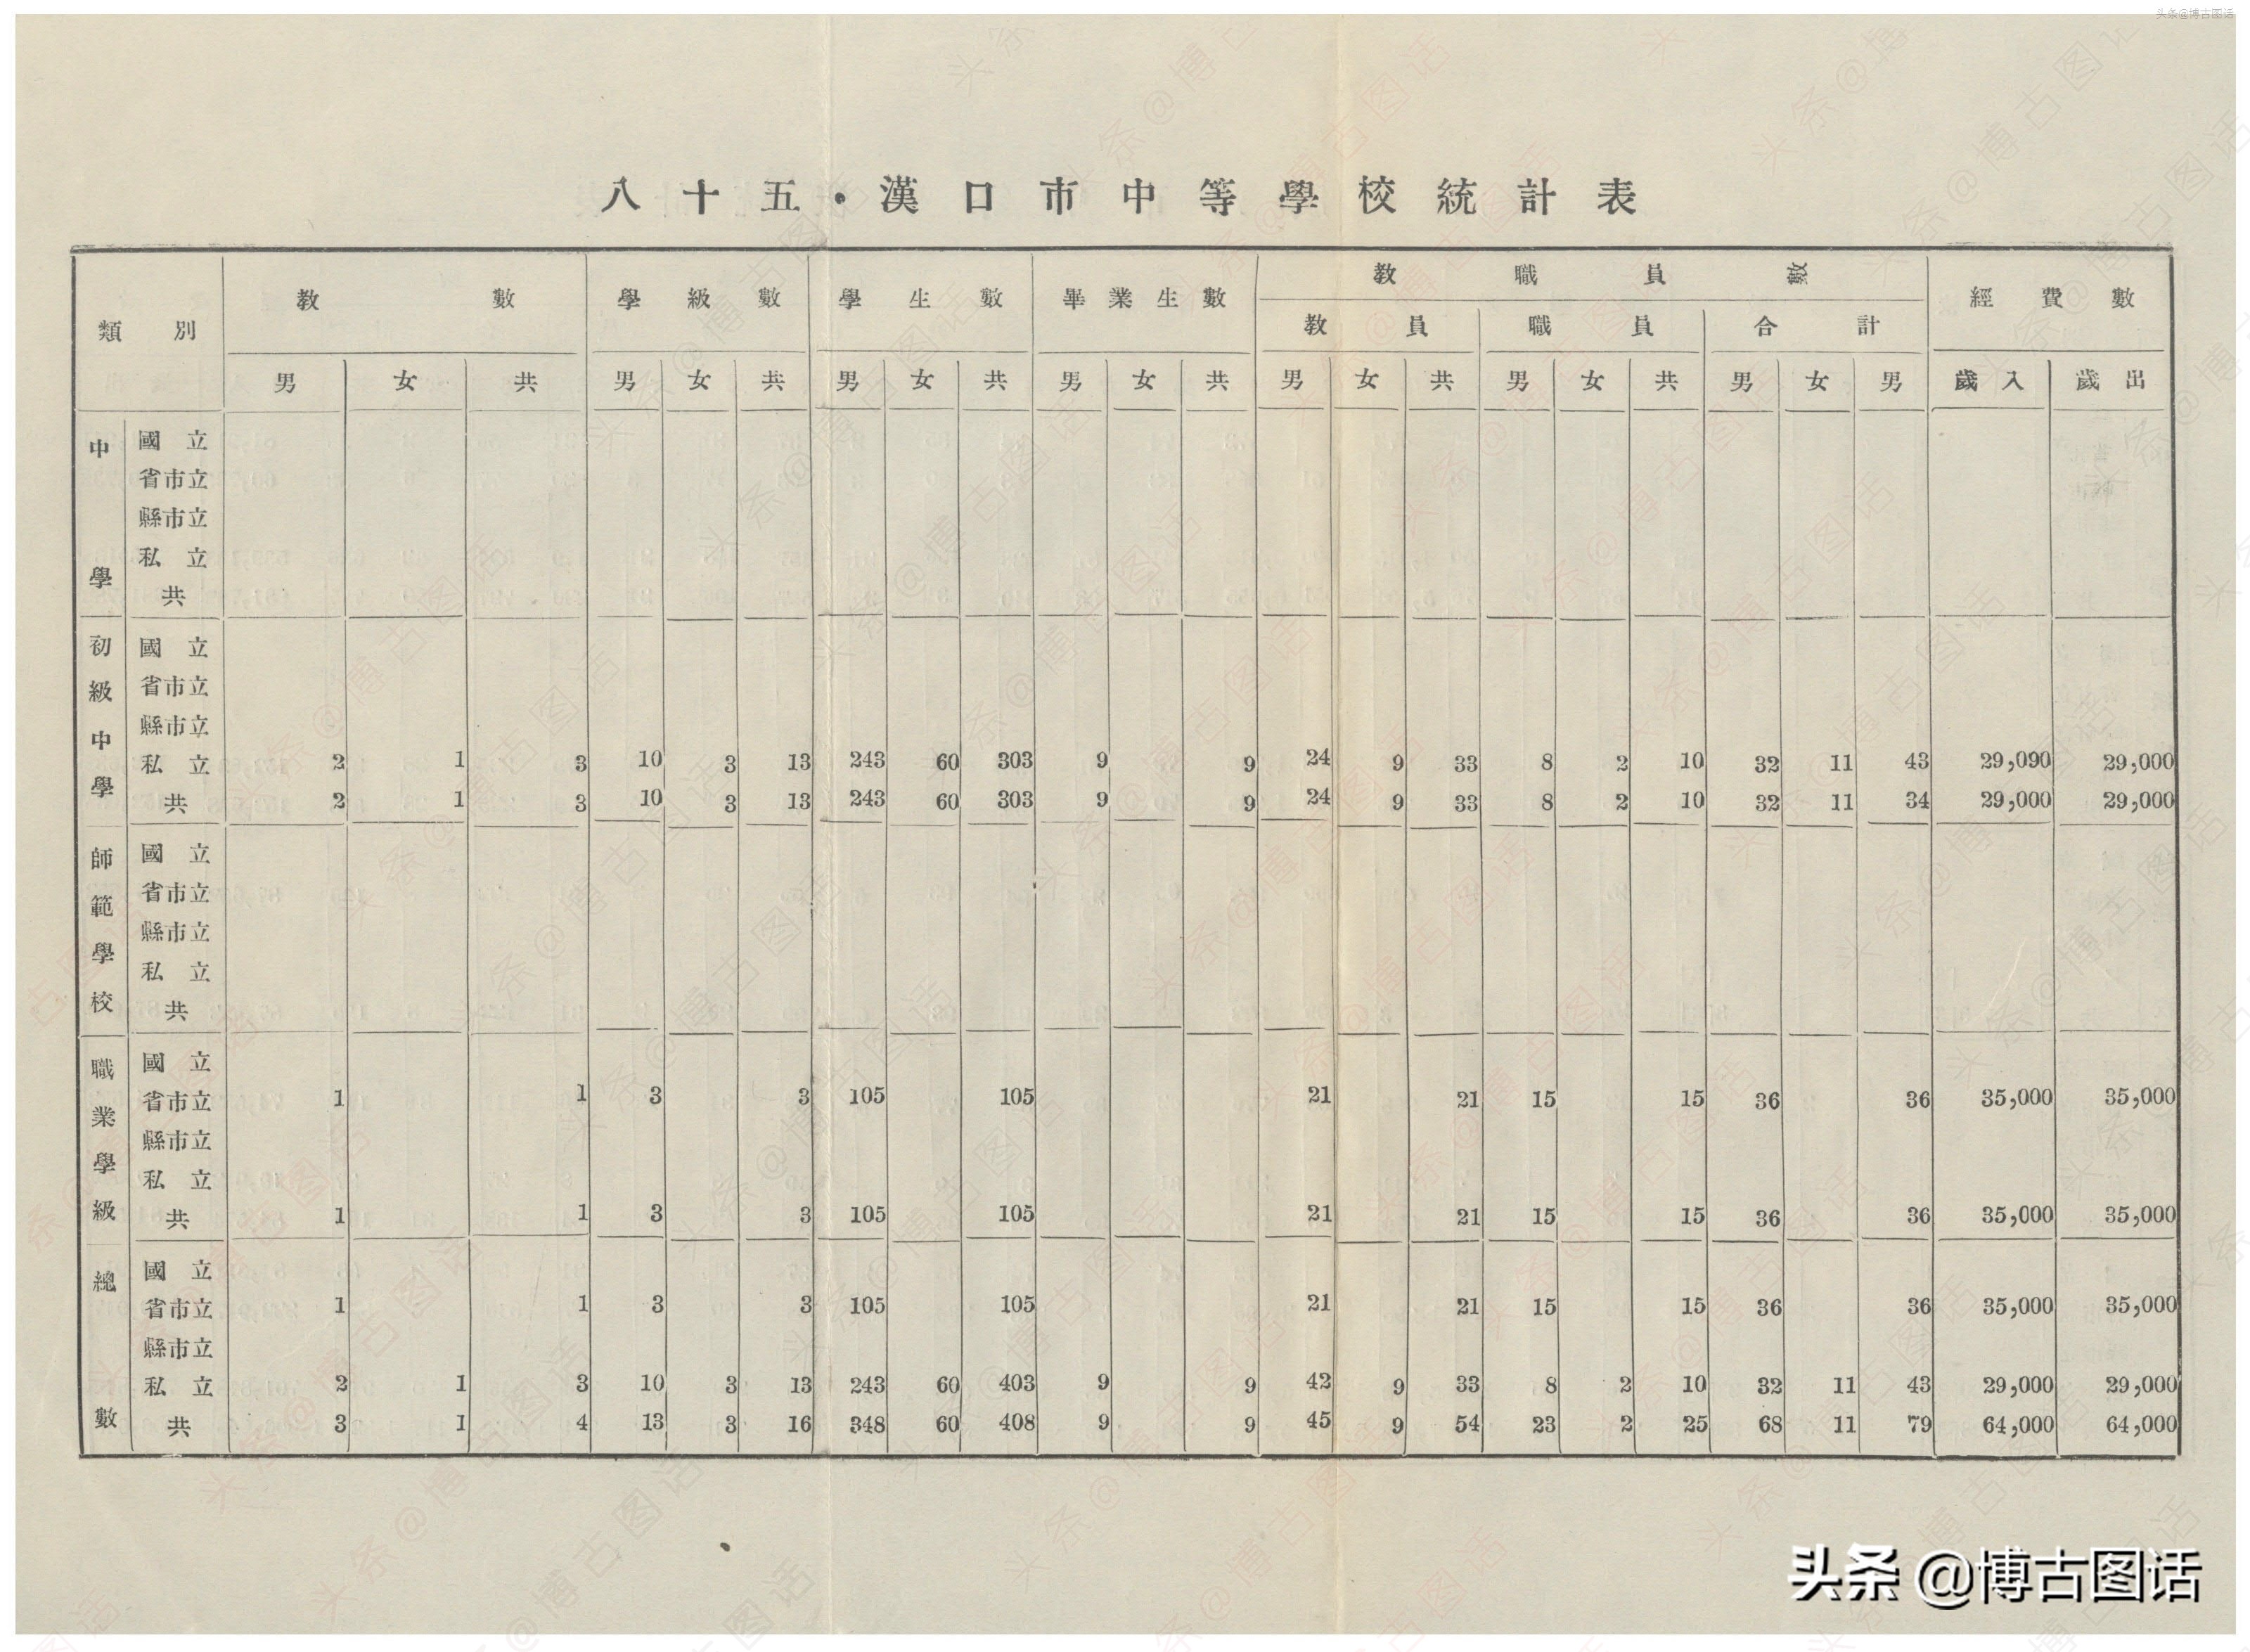 头条@博古图话
八十五·漢口市中等學校統計表
類別 教數 學級數 學生數 畢業生數 教職員數 經費數
教員 職員 合計
男 女 共 男 女 共 男 女 共 男 女 共 男 女 共 男 女 共 男 女 男 歲入 歲出
中學
國立
省市立
縣市立
私立
共
初級中學
國立
省市立
縣市立
私立 2 1 3 10 3 13 243 60 303 9 9 24 9 33 8 2 10 32 11 43 29,090 29,000
共 2 1 3 10 3 13 243 60 303 9 9 24 9 33 8 2 10 32 11 34 29,000 29,000
師範學校
國立
省市立
縣市立
私立
共
職業學級
國立
省市立 1 1 3 3 105 105 21 21 15 15 36 36 35,000 35,000
縣市立
私立
共 1 1 3 3 105 105 21 21 15 15 36 36 35,000 35,000
總數
國立
省市立 1 1 3 3 105 105 21 21 15 15 36 36 35,000 35,000
縣市立
私立 2 1 3 10 3 13 243 60 403 9 9 42 9 33 8 2 10 32 11 43 29,000 29,000
共 3 1 4 13 3 16 348 60 408 9 9 45 9 54 23 2 25 68 11 79 64,000 64,000
头条@博古图话